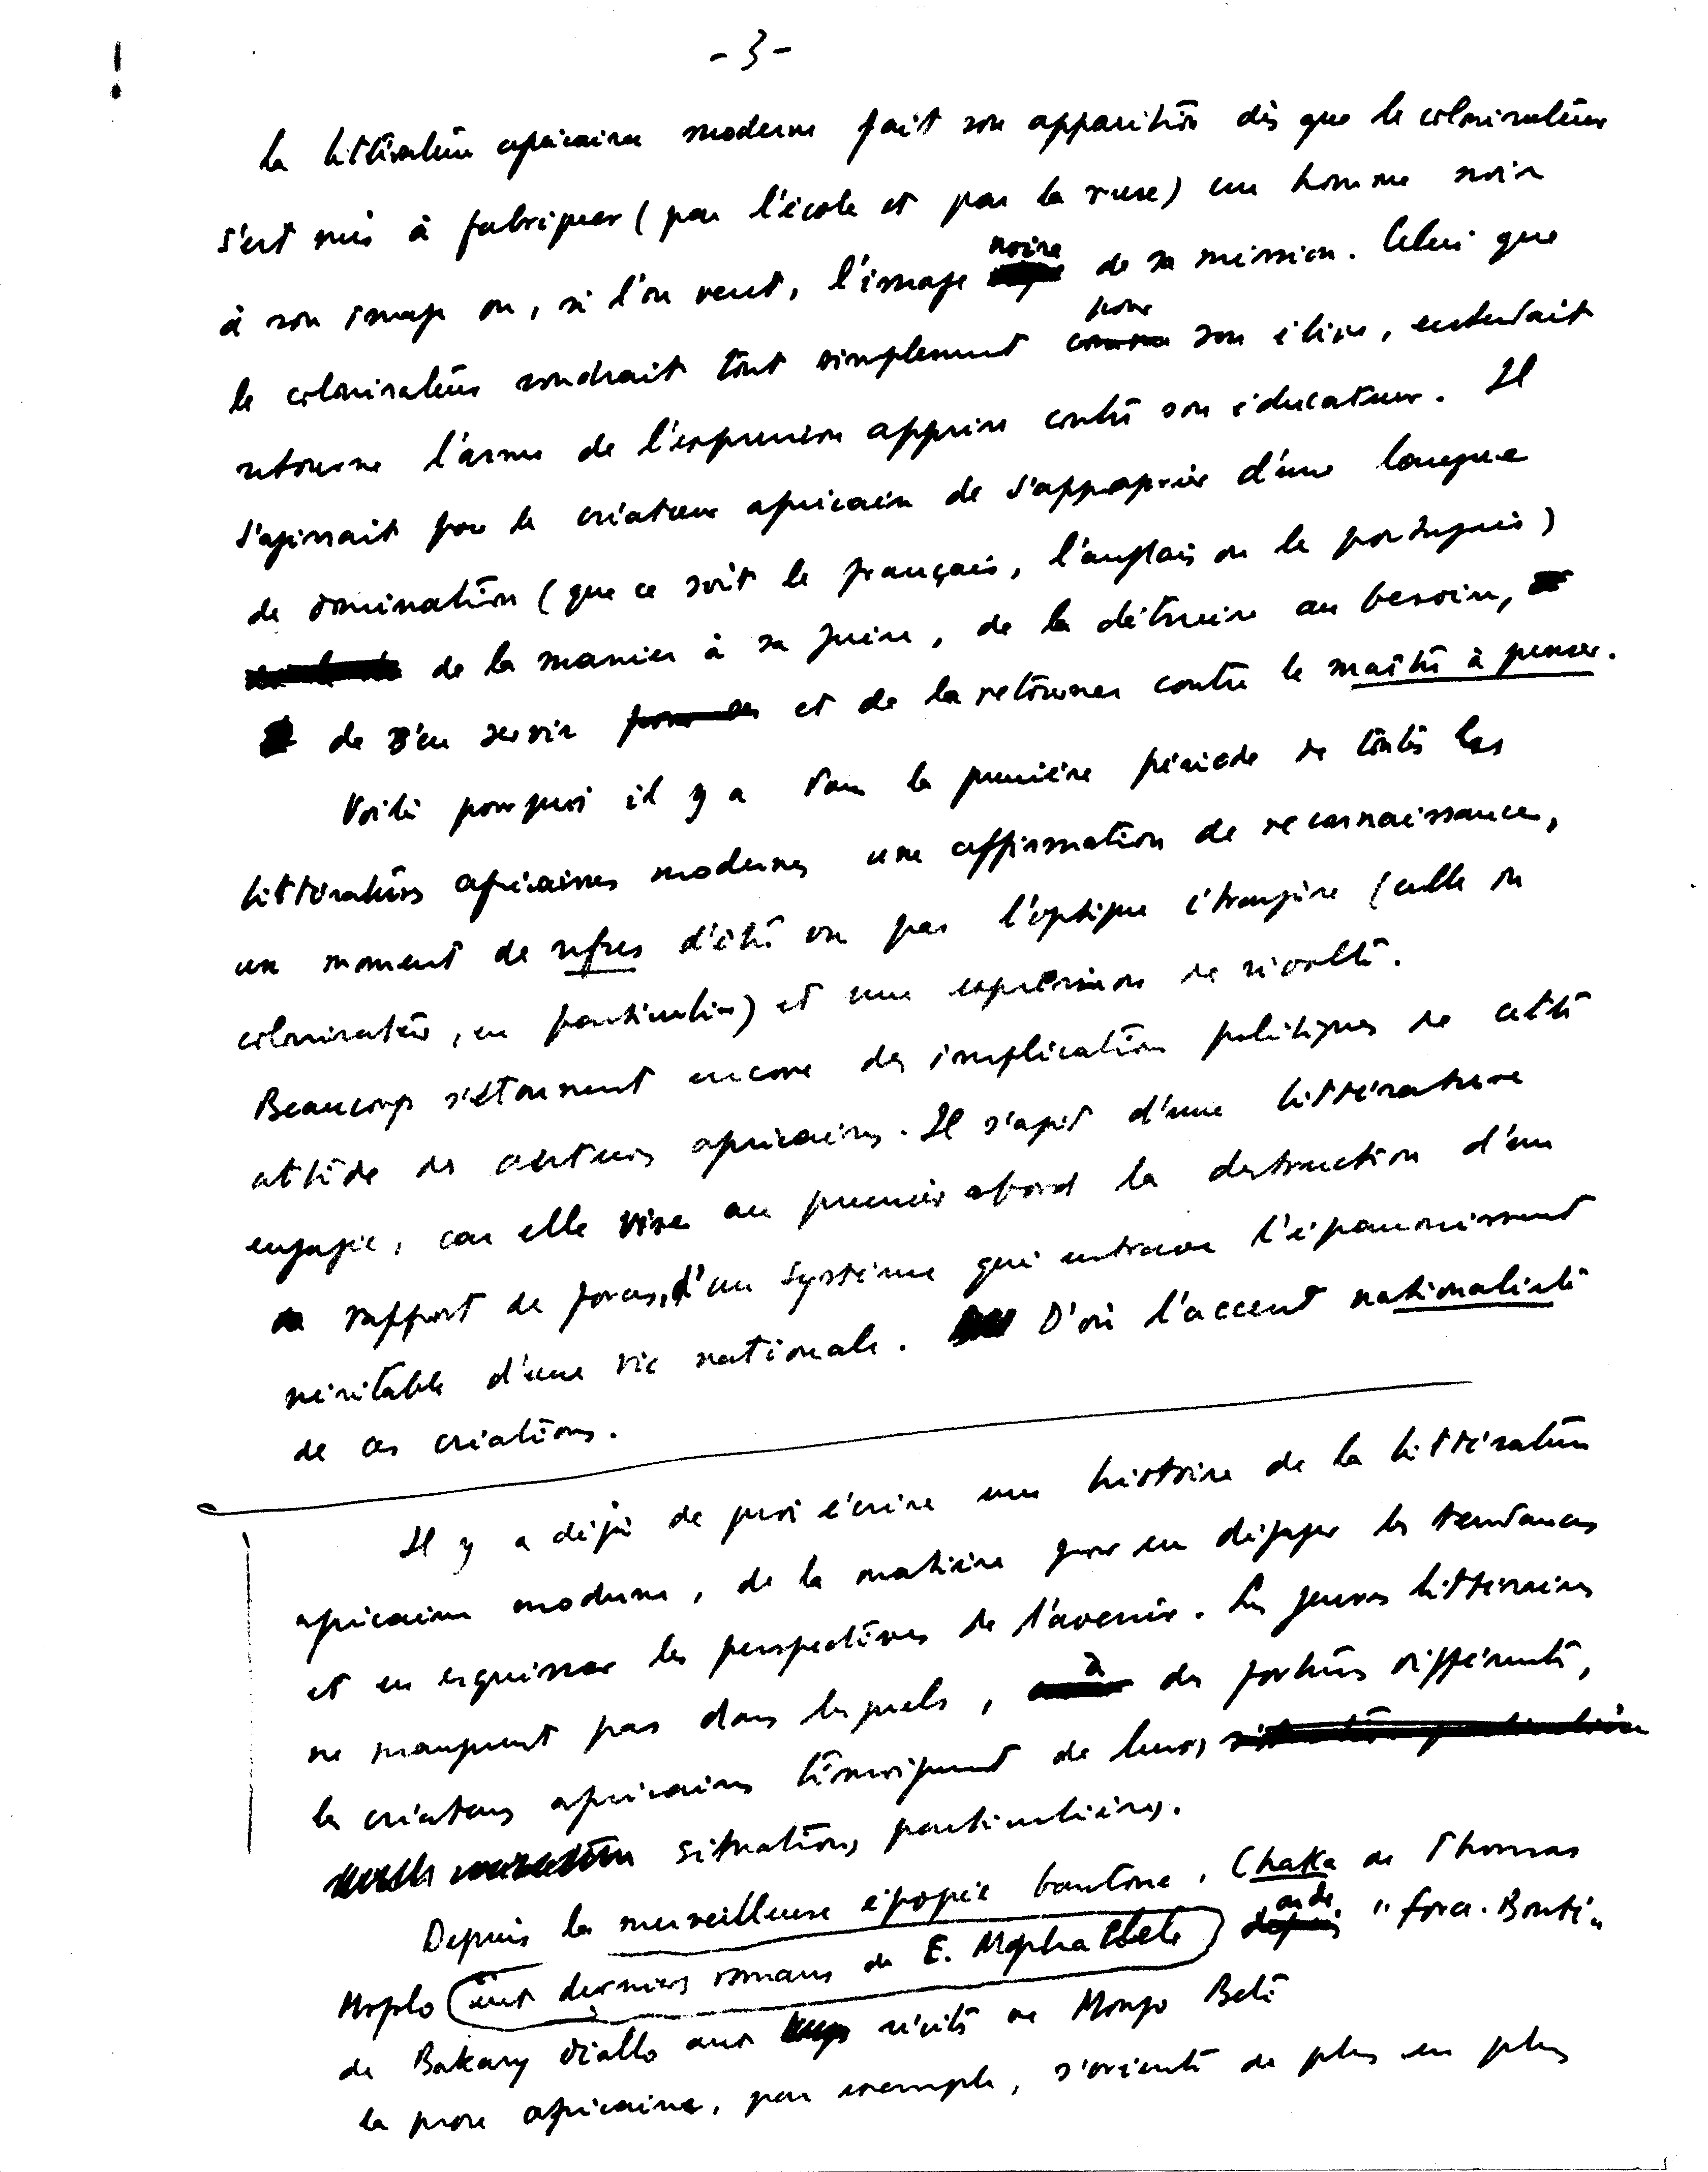 - 3 -
La littérature africaine moderne fait son apparition dès que le colonisateur
s'est mis à fabriquer (par l'école et par la ruse) un homme noir
à son image ou, si l'on veut, l'image noire de sa mission. Celui que
le colonisateur voudrait tout simplement comme pour son élève, entendait
retourne l'arme de l'expression apprise contre son éducateur. Il
s'agissait pour le créateur africain de s'approprier d'une langue
de domination (que ce soit le français, l'anglais ou le portugais)
de la manier à sa guise, de la détruire au besoin,
de s'en servir et de la retourner contre le maître à penser.
Voilà pourquoi il y a dans la première période de toutes les
littératures africaines modernes une affirmation de reconnaissance,
un moment de refus d'être vu par l'optique étrangère (celle du
colonisateur, en particulier) et une expression de révolte.
Beaucoup s'étonnent encore des implications politiques de cette
attitude des auteurs africains. Il s'agit d'une littérature
engagée, car elle vise au premier abord la destruction d'un
rapport de forces, d'un système qui entrave l'épanouissement
véritable d'une vie nationale. D'où l'accent nationaliste
de ces créations.
Il y a déjà de quoi écrire une histoire de la littérature
africaine moderne, de la matière pour en dégager les tendances
et en esquisser les perspectives de l'avenir. Les genres littéraires
ne manquent pas dans lesquels, à des fortunes différentes,
les créateurs africains témoignent de leurs
situations particulières.
Depuis la merveilleuse épopée bantoue, Chaka de Thomas
Mopho aux derniers romans de E. Mphahlele de "Force-Bonté"
de Bakary Diallo aux récits de Mongo Beti
la prose africaine, par exemple, s'oriente de plus en plus